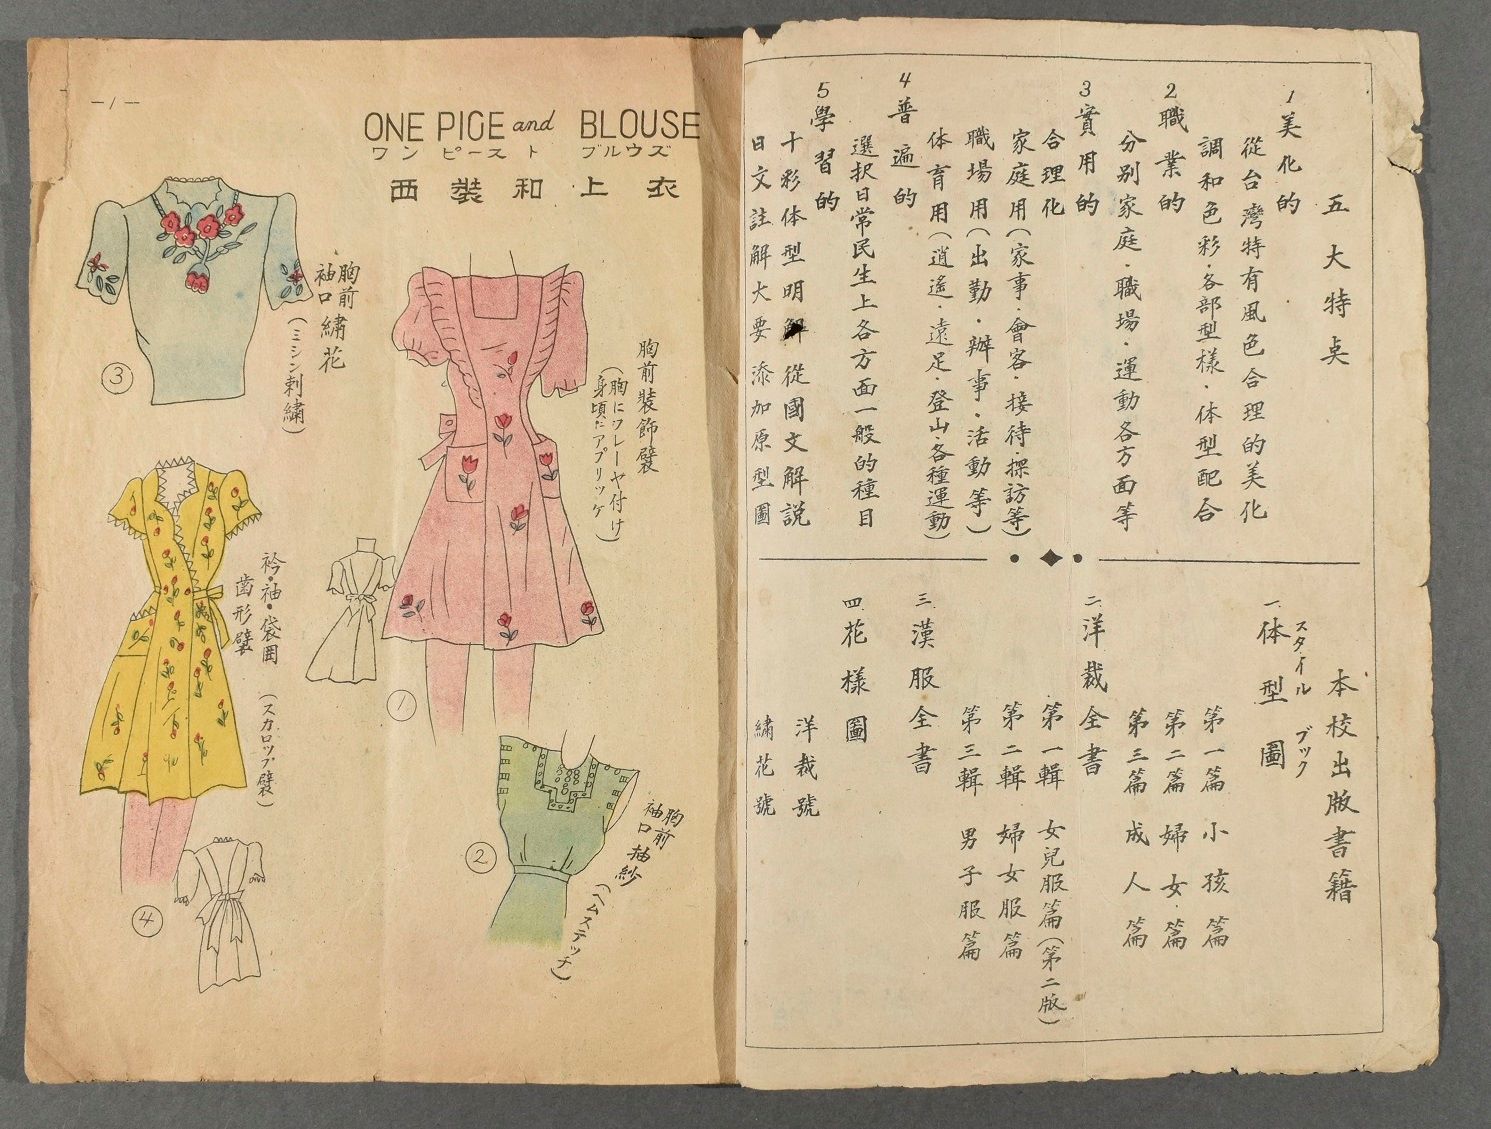 五大特点
1 美化的
從台灣特有風色合理的美化
調和色彩・各部型樣・体型配合
2 職業的
分別家庭・職場・運動各方面等
3 實用的
合理化
家庭用(家事・會客・接待・探訪等)
職場用(出勤・辦事・活動等)
体育用(逍遙・遠足・登山・各種運動)
4 普遍的
選択日常民生上各方面一般的種目
5 學習的
十彩体型明解從國文解説
日文註解大要添加原型圖
本校出版書籍
スタイル ブック
一.体型圖
第一篇 小孩篇
第二篇 婦女篇
第三篇 成人篇
二.洋裁全書
第一輯 女兒服篇(第二版)
第二輯 婦女服篇
第三輯 男子服篇
三.漢服全書
四.花樣圖
洋裁號
繡花號
—1—
ONE PICE and BLOUSE
ワンピースト ブルウズ
西裝和上衣
胸前
袖口繡花
(ミシン刺繡)
③
胸前裝飾襞
(胸にフレーヤ付け
身頃にアプリッケ)
①
衿・袖・袋囲
齒形襞
(スカロップ襞)
④
胸前
袖口抽紗
(ヘムステッチ)
②